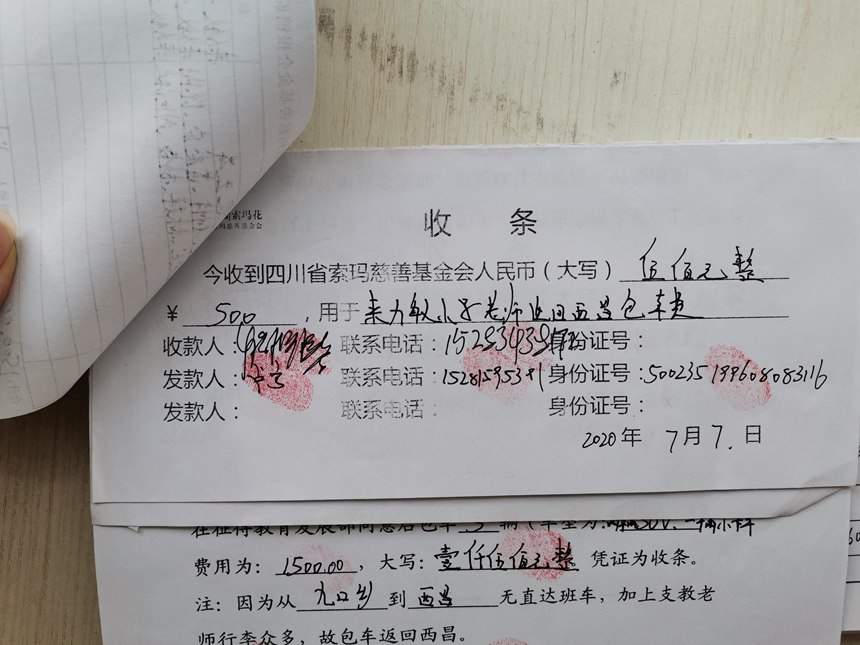 索玛花
慈善基金会
收 条
今收到四川省索玛慈善基金会人民币（大写） 伍佰元整
¥ 500 ，用于 来力敏小学老师返回西昌包车费
收款人： 联系电话： 身份证号：
发款人： 联系电话：15281595381 身份证号：500235199608083116
发款人： 联系电话： 身份证号：
2020年 7月7. 日
在征得教育发展部同意后包车 3 辆（车型为：
费用为： 1500.00 ，大写：壹仟伍佰元整 凭证为收条。
注：因为从 九口乡 到 西昌 无直达班车，加上支教老
师行李众多，故包车返回西昌。